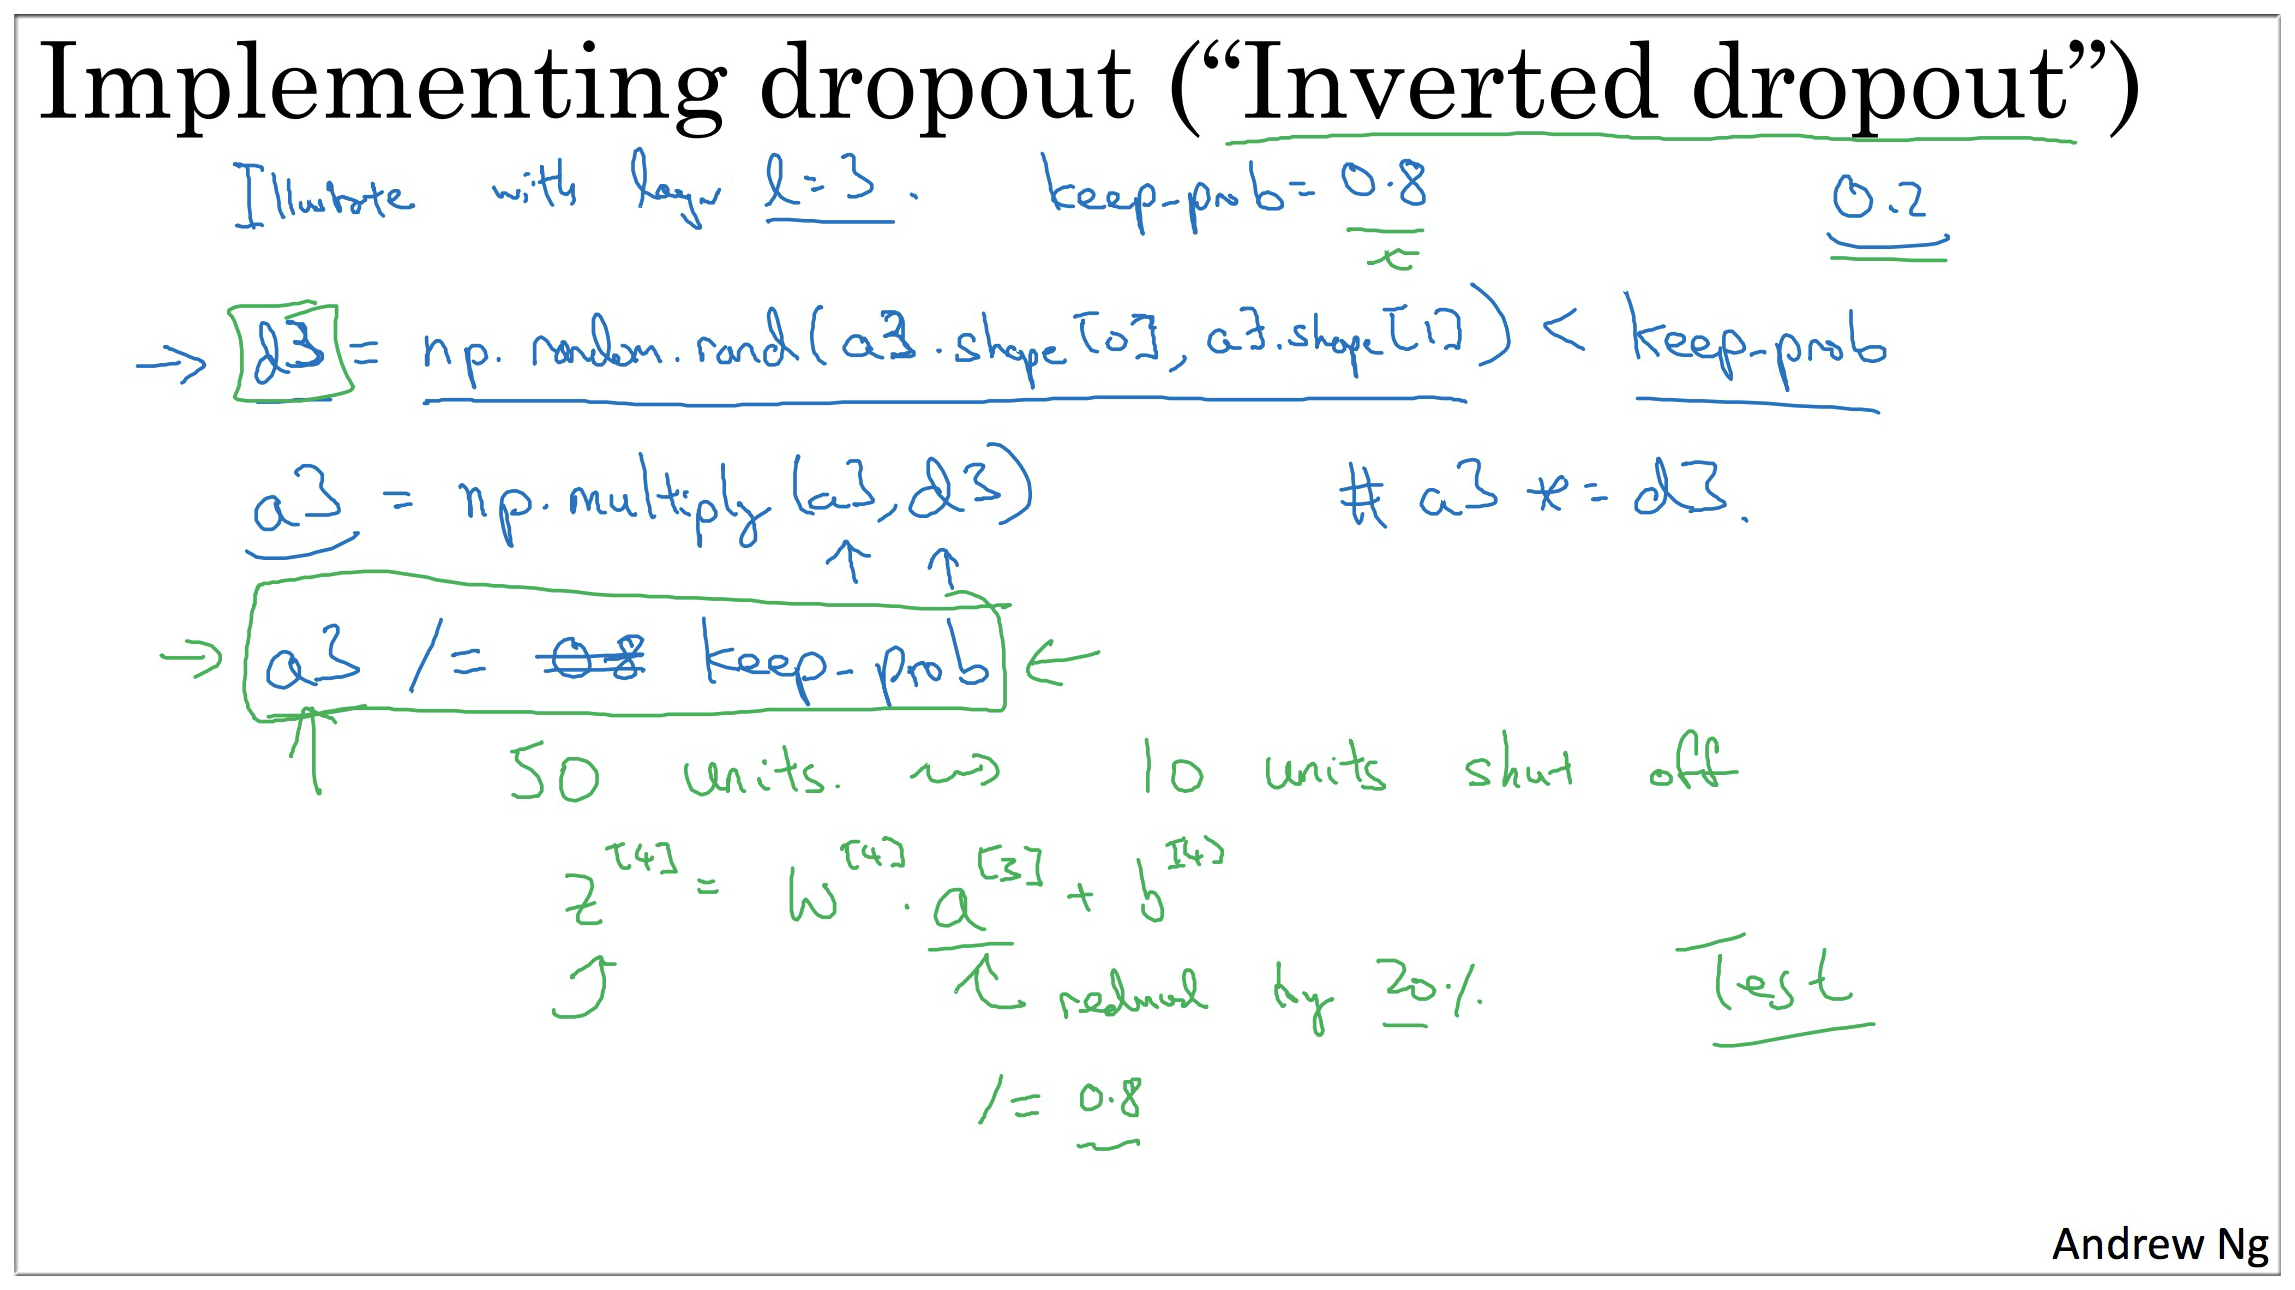 Implementing dropout (“Inverted dropout”)
Illustrate with layer l=3. keep-prob=0.8 0.2
→ d3 = np.random.rand(a3.shape[0], a3.shape[1]) < keep-prob
a3 = np.multiply(a3, d3) # a3 *= d3.
→ a3 /= 0.8 keep-prob ←
50 units. ⇝ 10 units shut off
z^[4] = W^[4] · a^[3] + b^[4]
reduced by 20%
Test
/= 0.8
Andrew Ng